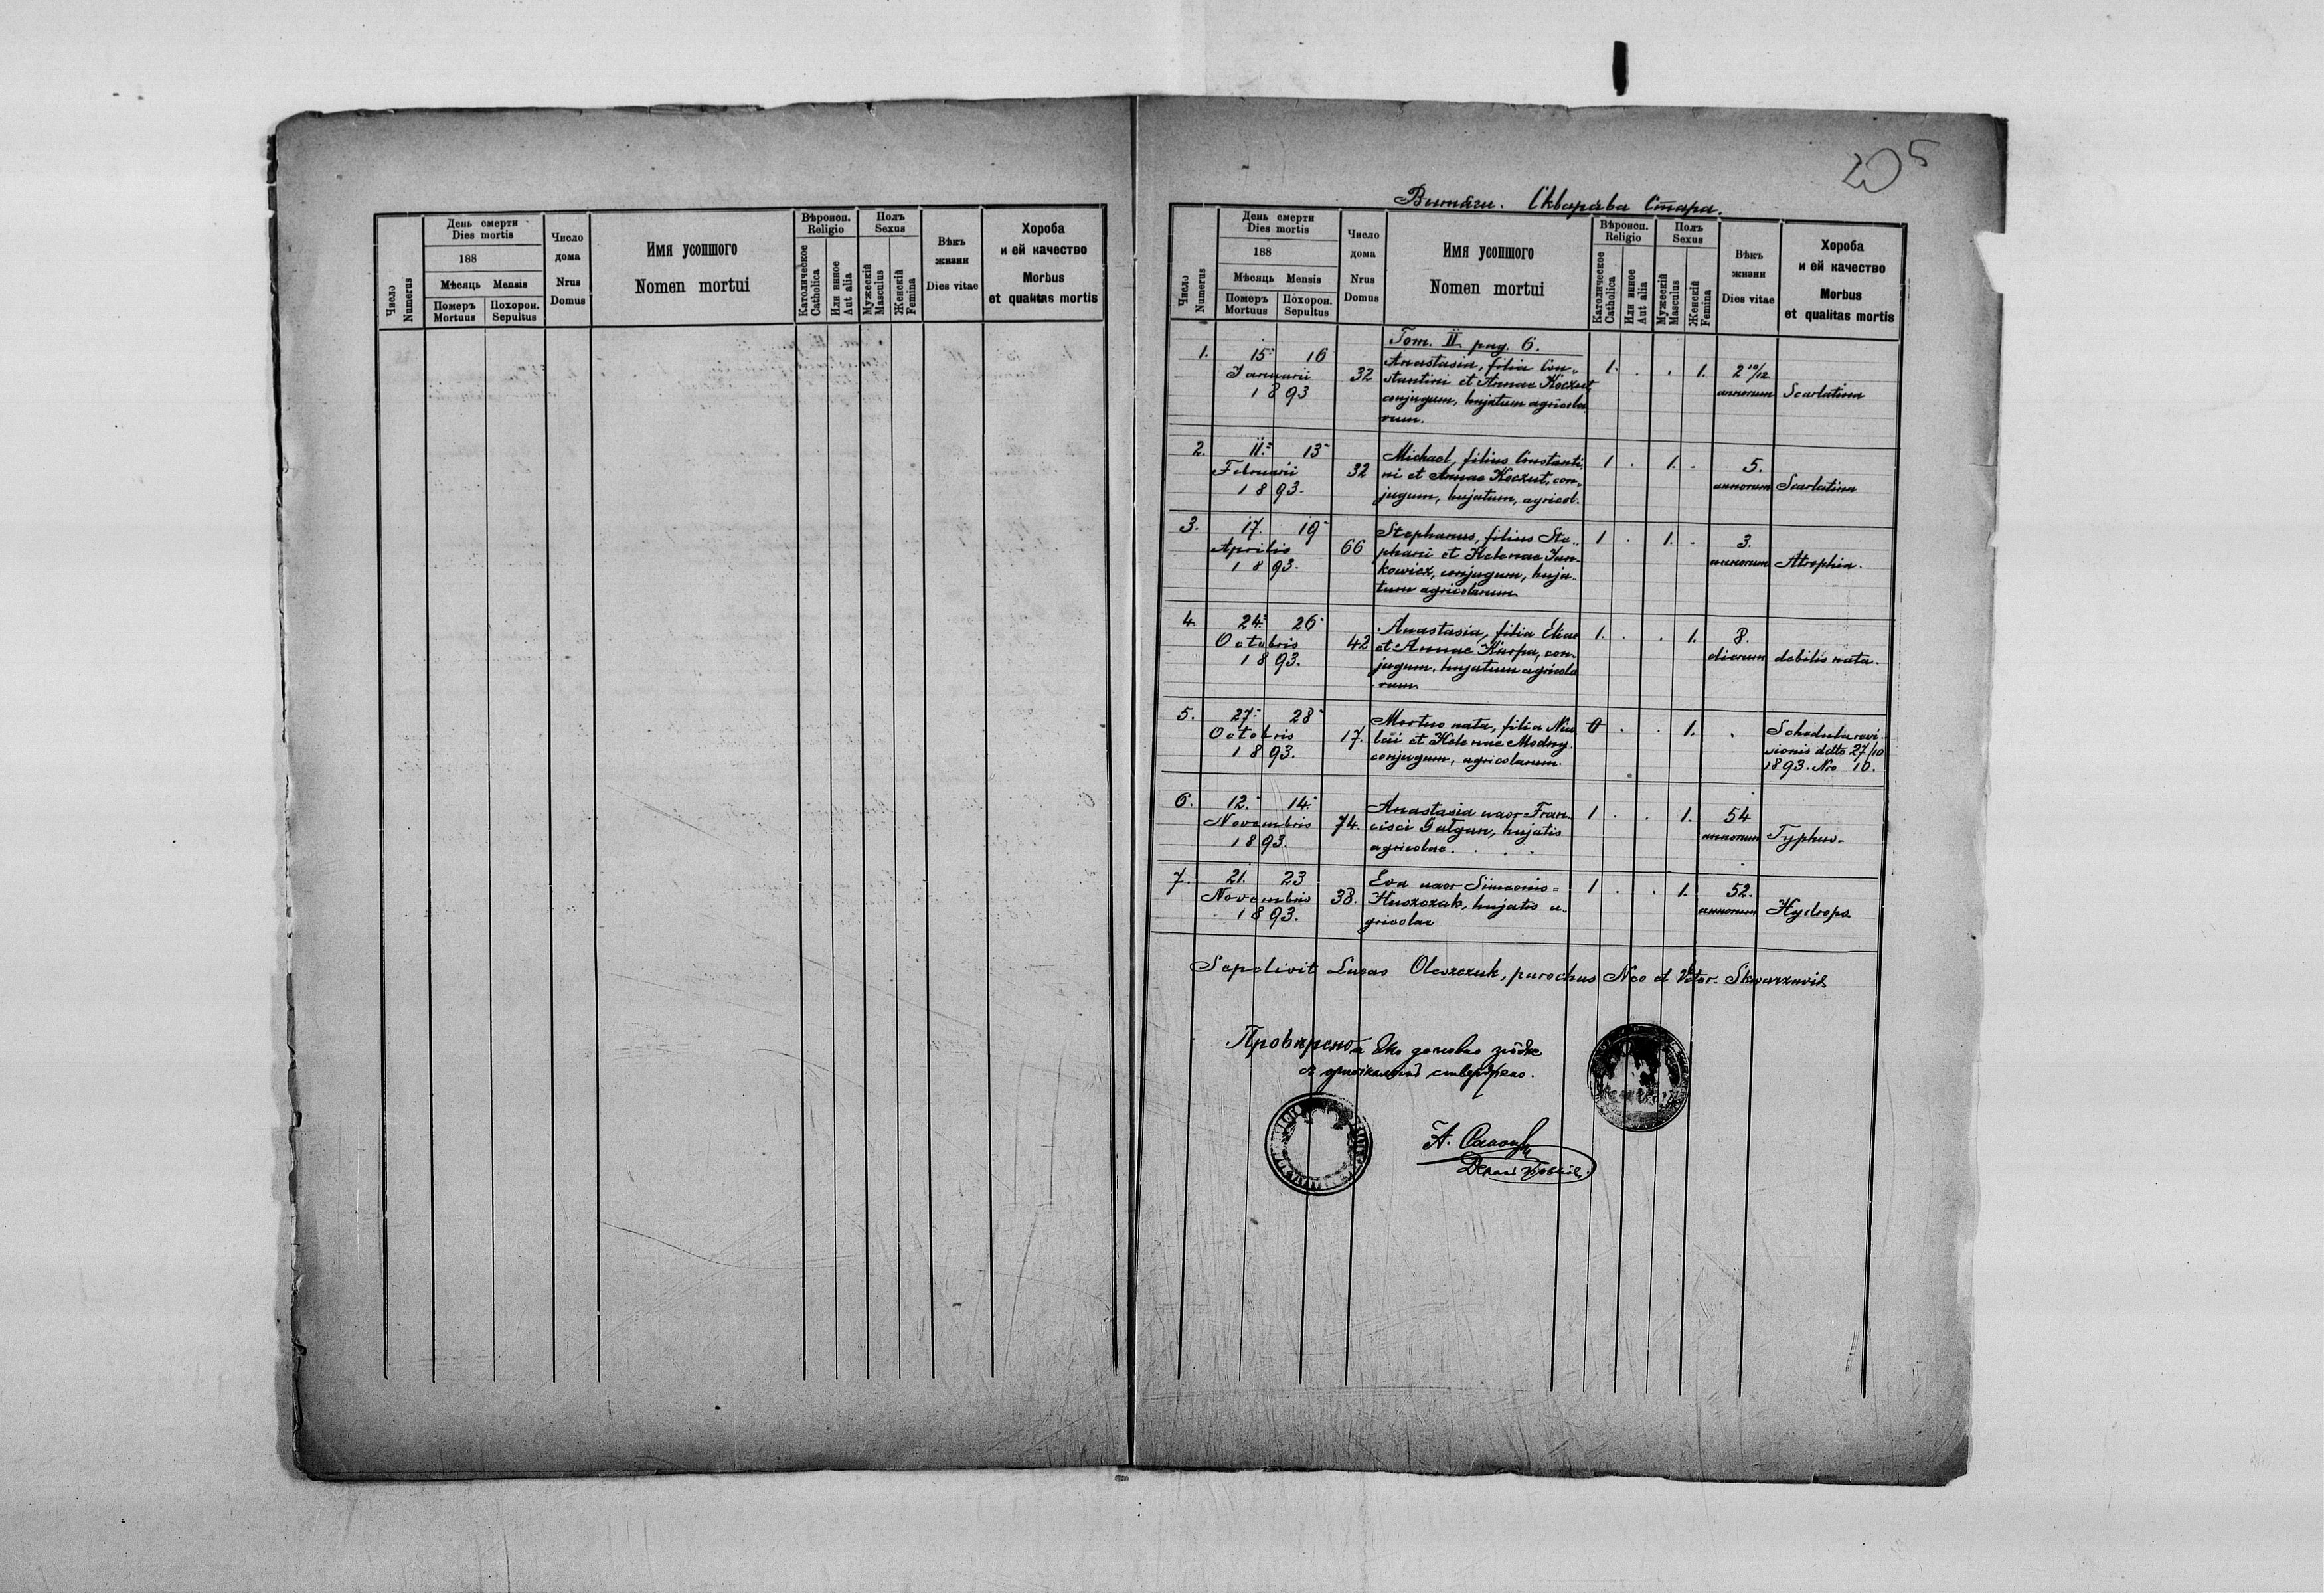 205
Витяги. Скварѧва Стара.
Число
Numerus
День смерти
Dies mortis
188
Мѣсяць Mensis
Померъ
Mortuus
Похорон.
Sepultus
Число
дома
Nrus
Domus
Имя усопшого
Nomen mortui
Вѣроисп.
Religio
Католическое
Catholica
Или инное
Aut alia
Полъ
Sexus
Мужескій
Masculus
Женскій
Femina
Вѣкъ
жизни
Dies vitae
Хороба
и ей качество
Morbus
et qualitas mortis
Число
Numerus
День смерти
Dies mortis
188
Мѣсяць Mensis
Померъ
Mortuus
Похорон.
Sepultus
Число
дома
Nrus
Domus
Имя усопшого
Nomen mortui
Вѣроисп.
Religio
Католическое
Catholica
Или инное
Aut alia
Полъ
Sexus
Мужескій
Masculus
Женскій
Femina
Вѣкъ
жизни
Dies vitae
Хороба
и ей качество
Morbus
et qualitas mortis
Tom. II. pag. 6.
1. 15 16 Anastasia, filia Con-
Januarii 32 stantini et Annae Koczut 1. . . 1. 2 10/12
1893 conjugum, hujatum agricola annorum Scarlatina
rum.
2. 11. 13 Michael, filius Constanti-
Februarii 32 ni et Annae Koczut, con- 1 . 1. . 5.
1893. jugum, hujatum, agricol. annorum Scarlatina
3. 17. 19 Stephanus, filius Ste- 1 . 1. . 3.
Aprilis 66 phani et Helenae Jan- annorum Atrophia.
1893. kowicz, conjugum, huja-
tum agricolarum
4. 24. 26 Anastasia, filia Eliae 1. . . 1. 8.
Octobris 42 et Annae Karpa, con- dierum debilis nata.
1893. jugum, hujatum agricola
rum
5. 27. 28 Mortuo nata, filia Nico 0 . . 1. . Scheduba revi-
Octobris 17. lai et Helenae Modny. sionis dtto 27/10
1893. conjugum, agricolarum. 1893. Nro 10.
6. 12. 14. Anastasia uxor Fran- 1 . . 1. 54
Novembris 74. cisci Galgan, hujatis annorum Typhus.
1893. agricolae.
7. 21. 23 Eva uxor Simeonis 1 . . 1. 52.
Novembris 38. Huszczak, hujatis a- annorum Hydrops
1893. gricolae
Sepelivit Lucas Oleszczuk, parochus Neo et Veter. Skwarzaviae
Провѣрено
А.